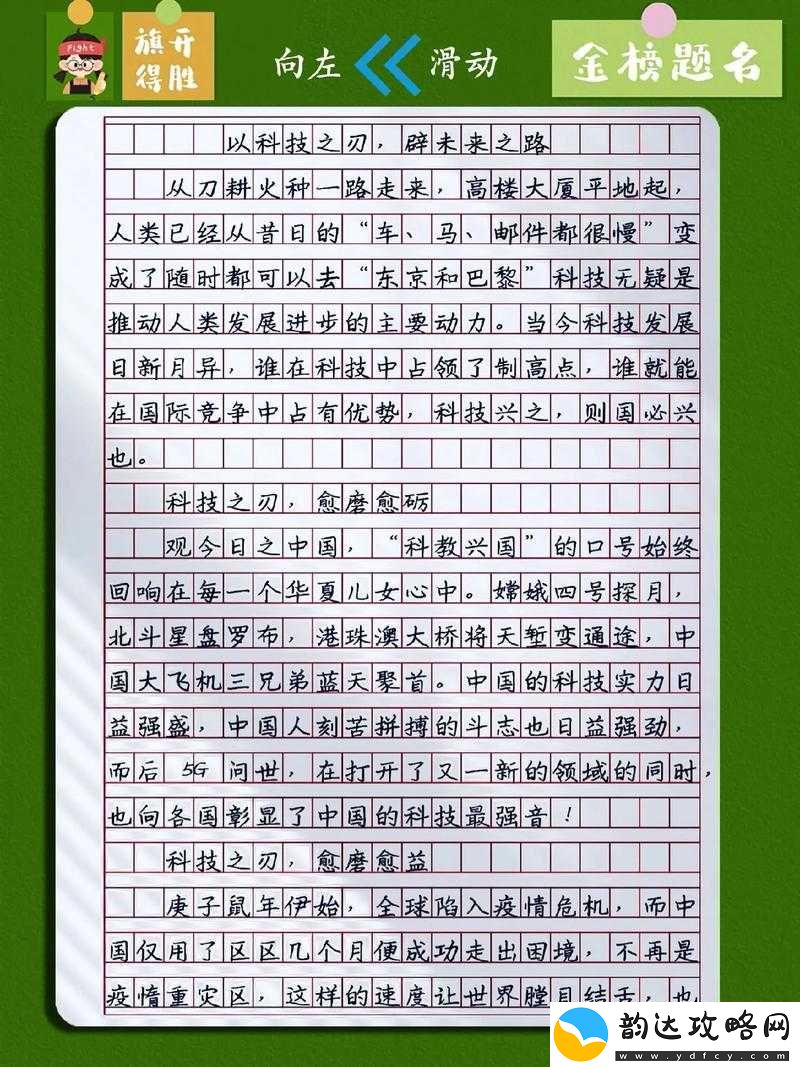 Fight
旗开
得胜
向左 滑动
金榜题名
以科技之刃，辟未来之路
从刀耕火种一路走来，高楼大厦平地起，
人类已经从昔日的“车、马、邮件都很慢”变
成了随时都可以去“东京和巴黎”科技无疑是
推动人类发展进步的主要动力。当今科技发展
日新月异，谁在科技中占领了制高点，谁就能
在国际竞争中占有优势，科技兴之，则国必兴
也。
科技之刃，愈磨愈砺
观今日之中国，“科教兴国”的口号始终
回响在每一个华夏儿女心中。嫦娥四号探月，
北斗星盘罗布，港珠澳大桥将天堑变通途，中
国大飞机三兄弟蓝天聚首。中国的科技实力日
益强盛，中国人刻苦拼搏的斗志也日益强劲，
而后5G问世，在打开了又一新的领域的同时，
也向各国彰显了中国的科技最强音！
科技之刃，愈磨愈益
庚子鼠年伊始，全球陷入疫情危机，而中
国仅用了区区几个月便成功走出困境，不再是
疫情重灾区，这样的速度让世界瞠目结舌，也
韵达攻略网
www.ydfcy.com